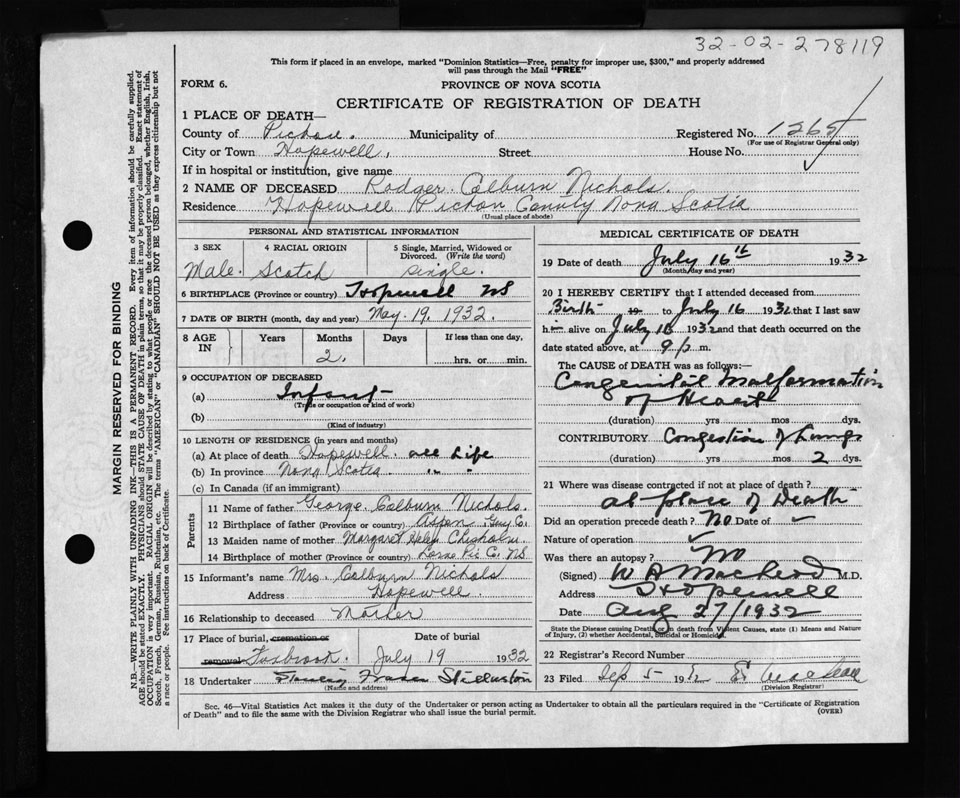 32-02-278119
This form if placed in an envelope, marked "Dominion Statistics—Free, penalty for improper use, $300," and properly addressed
will pass through the Mail "FREE"
FORM 6.
PROVINCE OF NOVA SCOTIA
CERTIFICATE OF REGISTRATION OF DEATH
1 PLACE OF DEATH—
County of Pictou. Municipality of Registered No. 1265
(For use of Registrar General only)
City or Town Hopewell, Street House No.
If in hospital or institution, give name
2 NAME OF DECEASED Rodger Colburn Nichols.
Residence Hopewell Pictou County Nova Scotia
(Usual place of abode)
PERSONAL AND STATISTICAL INFORMATION
3 SEX 4 RACIAL ORIGIN 5 Single, Married, Widowed or Divorced. (Write the word)
Male. Scotch single.
6 BIRTHPLACE (Province or country) Hopewell NS
7 DATE OF BIRTH (month, day and year) May. 19, 1932.
8 AGE IN Years Months Days If less than one day,
2. hrs. or min.
9 OCCUPATION OF DECEASED
(a) Infant
(Trade or occupation or kind of work)
(b)
(Kind of industry)
10 LENGTH OF RESIDENCE (in years and months)
(a) At place of death Hopewell. all Life
(b) In province Nova Scotia " "
(c) In Canada (if an immigrant)
Parents
11 Name of father George Colburn Nichols.
12 Birthplace of father (Province or country) Aspen Guy C.
13 Maiden name of mother Margaret Helen Chisholm.
14 Birthplace of mother (Province or country) Lorne Pic C. NS
15 Informant's name Mrs. Colburn Nichols
Address Hopewell.
16 Relationship to deceased Mother
17 Place of burial, cremation or Date of burial
removal Foxbrook. July 19 1932
18 Undertaker Fraser Stellarton
(Name and address)
MEDICAL CERTIFICATE OF DEATH
19 Date of death July 16th 1932
(Month day and year)
20 I HEREBY CERTIFY that I attended deceased from
Birth 19 to July 16 1932 that I last saw
h alive on July 16 1932 and that death occurred on
date stated above, at 9 p m.
The CAUSE of DEATH was as follows:—
Congenital Malformation
of Heart
(duration) yrs mos dys.
CONTRIBUTORY Congestion of Lungs
(duration) yrs mos 2 dys.
21 Where was disease contracted if not at place of death?
at place of Death
Did an operation precede death? No Date of
Nature of operation
Was there an autopsy? No
(Signed) W A MacLeod M.D.
Address Hopewell
Date Aug 27/1932
State the Disease causing Death or in death from Violent Causes, state (1) Means and Nature
of Injury, (2) whether Accidental, Suicidal or Homicidal.
22 Registrar's Record Number
23 Filed Sep 5 19
(Division Registrar)
Sec. 46—Vital Statistics Act makes it the duty of the Undertaker or person acting as Undertaker to obtain all the particulars required in the "Certificate of Registration
of Death" and to file the same with the Division Registrar who shall issue the burial permit.
(OVER)
MARGIN RESERVED FOR BINDING
N.B.—WRITE PLAINLY WITH UNFADING INK—THIS IS A PERMANENT RECORD. Every item of information should be carefully supplied.
AGE should be stated EXACTLY. PHYSICIANS should STATE CAUSE OF DEATH in plain terms, so that it may be properly classified. Exact statement of
OCCUPATION is very important. RACIAL ORIGIN will be described by stating to what people or race the deceased person belonged, whether English, Irish,
Scotch, French, German, Russian, Ruthenian, etc. The terms "AMERICAN" or "CANADIAN" SHOULD NOT BE USED as they express citizenship but not
a race or people. See instructions on back of Certificate.